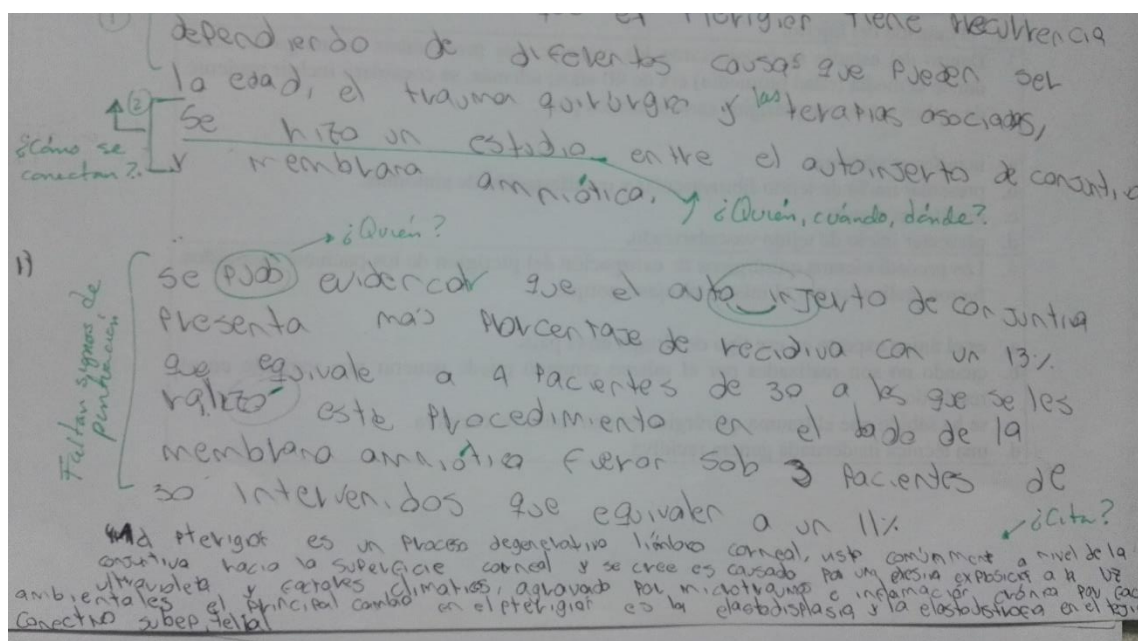 el Pterigier tiene Recurrencia
dependiendo de diferentes causas que pueden ser
la edad, el trauma quirurgico y las terapias asociadas,
②
Se hizo un estudio entre el autoinjerto de conjuntiva
¿Cómo se conectan?
y membrana amniótica.
¿Quién, cuándo, dónde?
¿Quién?
1)
Se pudo evidenciar que el auto injerto de conjuntiva
Presenta más Porcentaje de recidiva con un 13%
que equivale a 4 Pacientes de 30 a los que se les
ralizó este Procedimiento en el lado de la
membrana amniótica fueron solo 3 Pacientes de
30 intervenidos que equivalen a un 11%
Faltan signos de puntuación
¿Cita?
Pterigion es un Proceso degenerativo limbo corneal, visto comúnmente a nivel de la
conjuntiva hacia la superficie corneal y se cree es causado por una exposición a la luz
ultravioleta y climáticos, agravado por microtraumas e inflamación crónica por
ambientales el Principal cambio en el pterigion es la elastodisplasia y la elastodistrofia en el
conectivo subepitelial